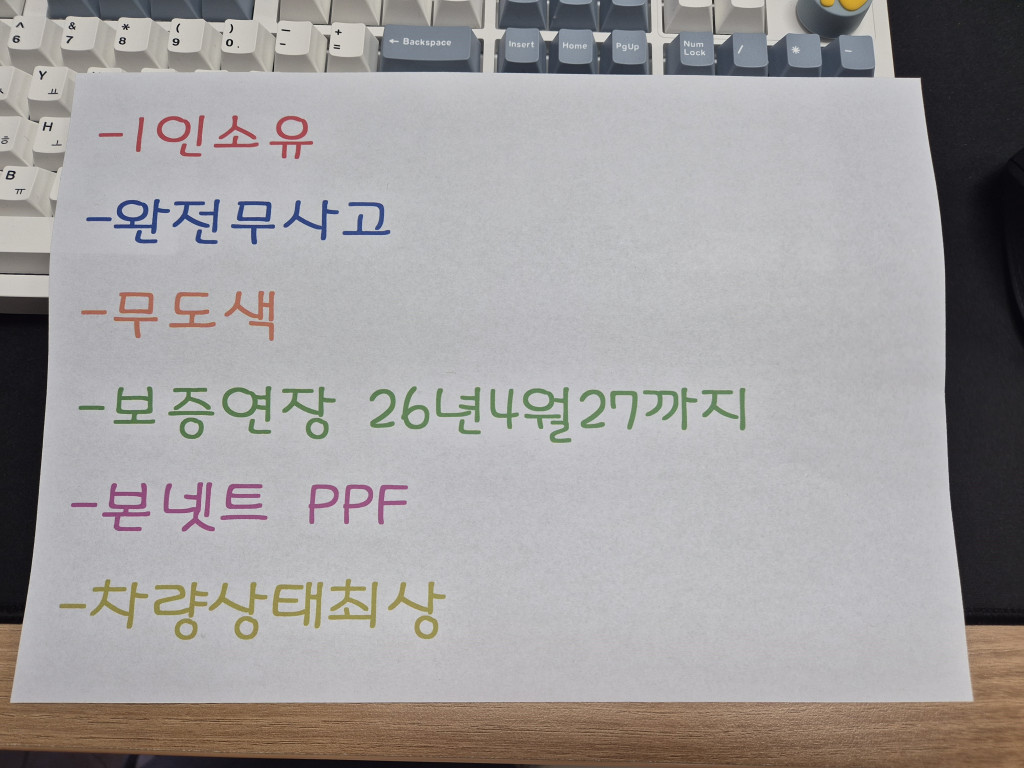 ^ & * ( ) — +
6 7 8 9 0 . - = ← Backspace Insert Home PgUp Num Lock / * -
Y ㅛ
H ㅗ
B ㅠ
-1인소유
-완전무사고
-무도색
-보증연장 26년4월27까지
-본넷트 PPF
-차량상태최상